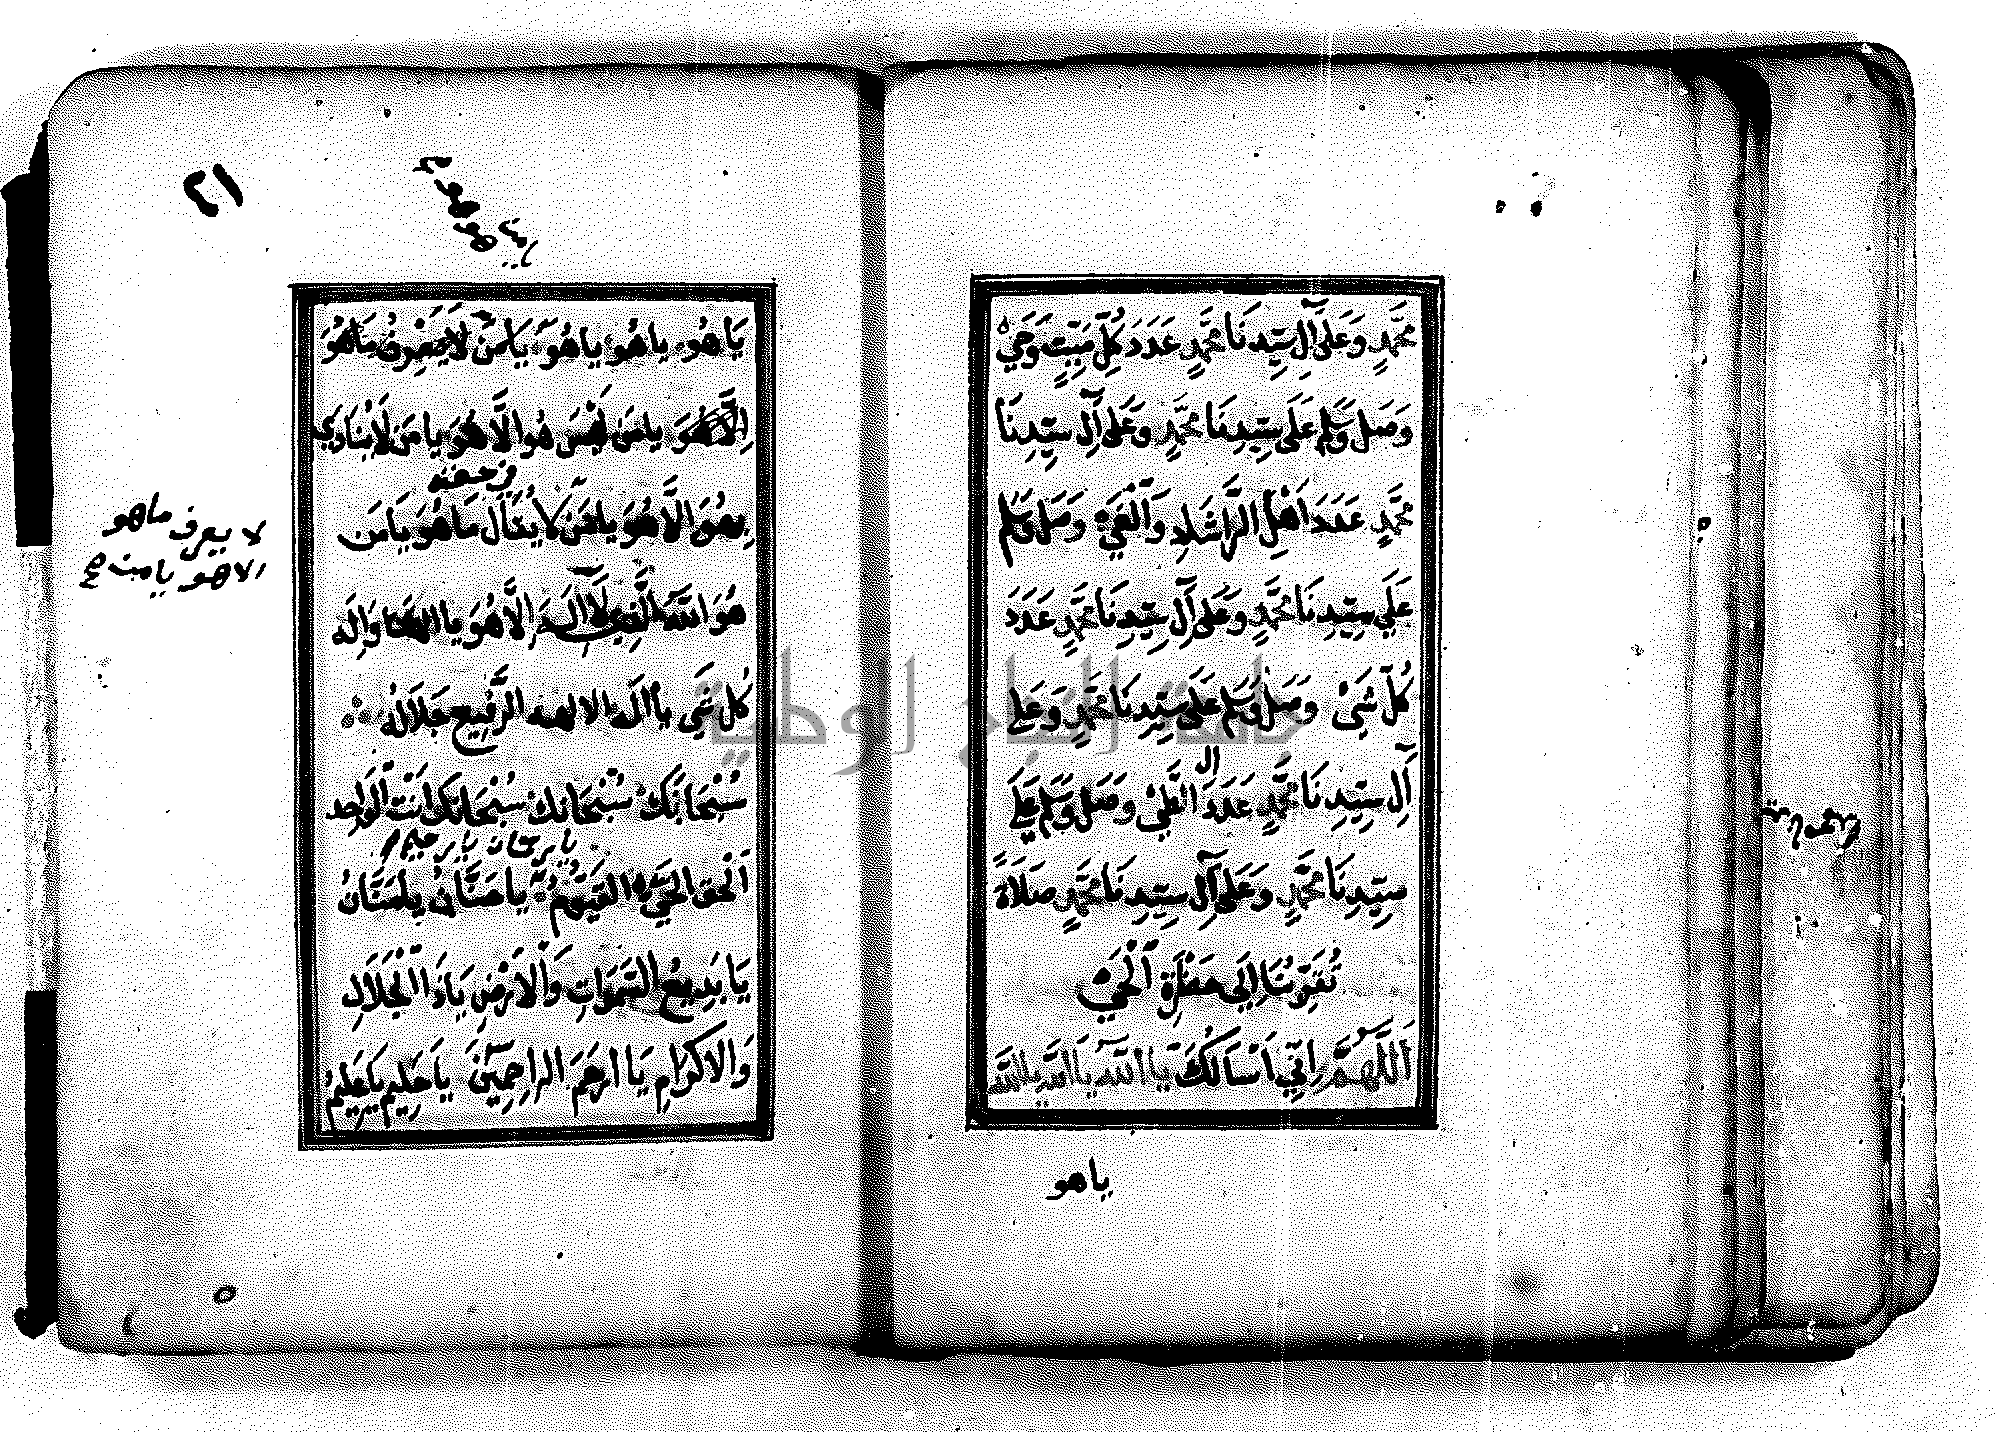 محَمَّدٍ وَعَلَى آلِ سَيِّدِنَا محَمَّدٍ عَدَدَ كُلِّ مَيِّتٍ وَحَيٍّ
وَصَلِّ وَسَلِّم عَلَى سَيِّدِنَا محَمَّدٍ وَعَلَى آلِ سَيِّدِنَا
محَمَّدٍ عَدَدَ اَهْلِ الرَّشَادِ وَالْغَيِّ وَصَلِّ وَسَلِّم
عَلَى سَيِّدِنَا محَمَّدٍ وَعَلَى آلِ سَيِّدِنَا محَمَّدٍ عَدَدَ
كُلِّ شَيْ وَصَلِّ وَسَلِّم عَلَى سَيِّدِنَا محَمَّدٍ وَعَلَى
آلِ سَيِّدِنَا محَمَّدٍ عَدَدَ وَصَلِّ وَسَلِّم عَلَى
سَيِّدِنَا محَمَّدٍ وَعَلَى آلِ سَيِّدِنَا محَمَّدٍ صَلَاةً
تُقَرِّبُنَا اِلَى حَضْرَةِ الْحَيّ
اَللَّهُمَّ اِنِّي اَسْاَلُكَ يا اللّه يا اللّه يا اللّه
ياهو
٢١
يَا هُو يا هُو يا هُو يَا مَنْ لَا يَعْرِفُ مَا هُوَ
اِلَّا هُوَ يا مَن لَيْسَ هُو الَّا هُوَ يا مَن لَا يُنَادِي
بِهُوَ الَّا هُوَ يا مَنْ لَا يُقَال مَا هُوَ يَا مَن
هُوَ اللّه الَّذِي لَا اِلَهَ الَّا هُوَ يا الهنا وَاِلَه
كُلِّ شَي يا اله الالهه الرَّفِيع جَلَالهُ
سُبْحَانَكَ سُبْحَانك سُبْحَانك اَنت الْوَاحِد
يا رحمان يا رحيم
اَلْحَق الحَيّ القَيُّومُ يا حَنَّانُ يا مَنَّانُ
يَا بَدِيعُ السَّمَوَاتِ وَالْاَرْضِ يَا ذَا الْجَلَالِ
وَالاكْرَامِ يَا اَرحَمَ الرَاحِمِينَ يَا حَلِيم يَا عَلِيمُ
لا يعرف ماهو
الاهو يا من صح